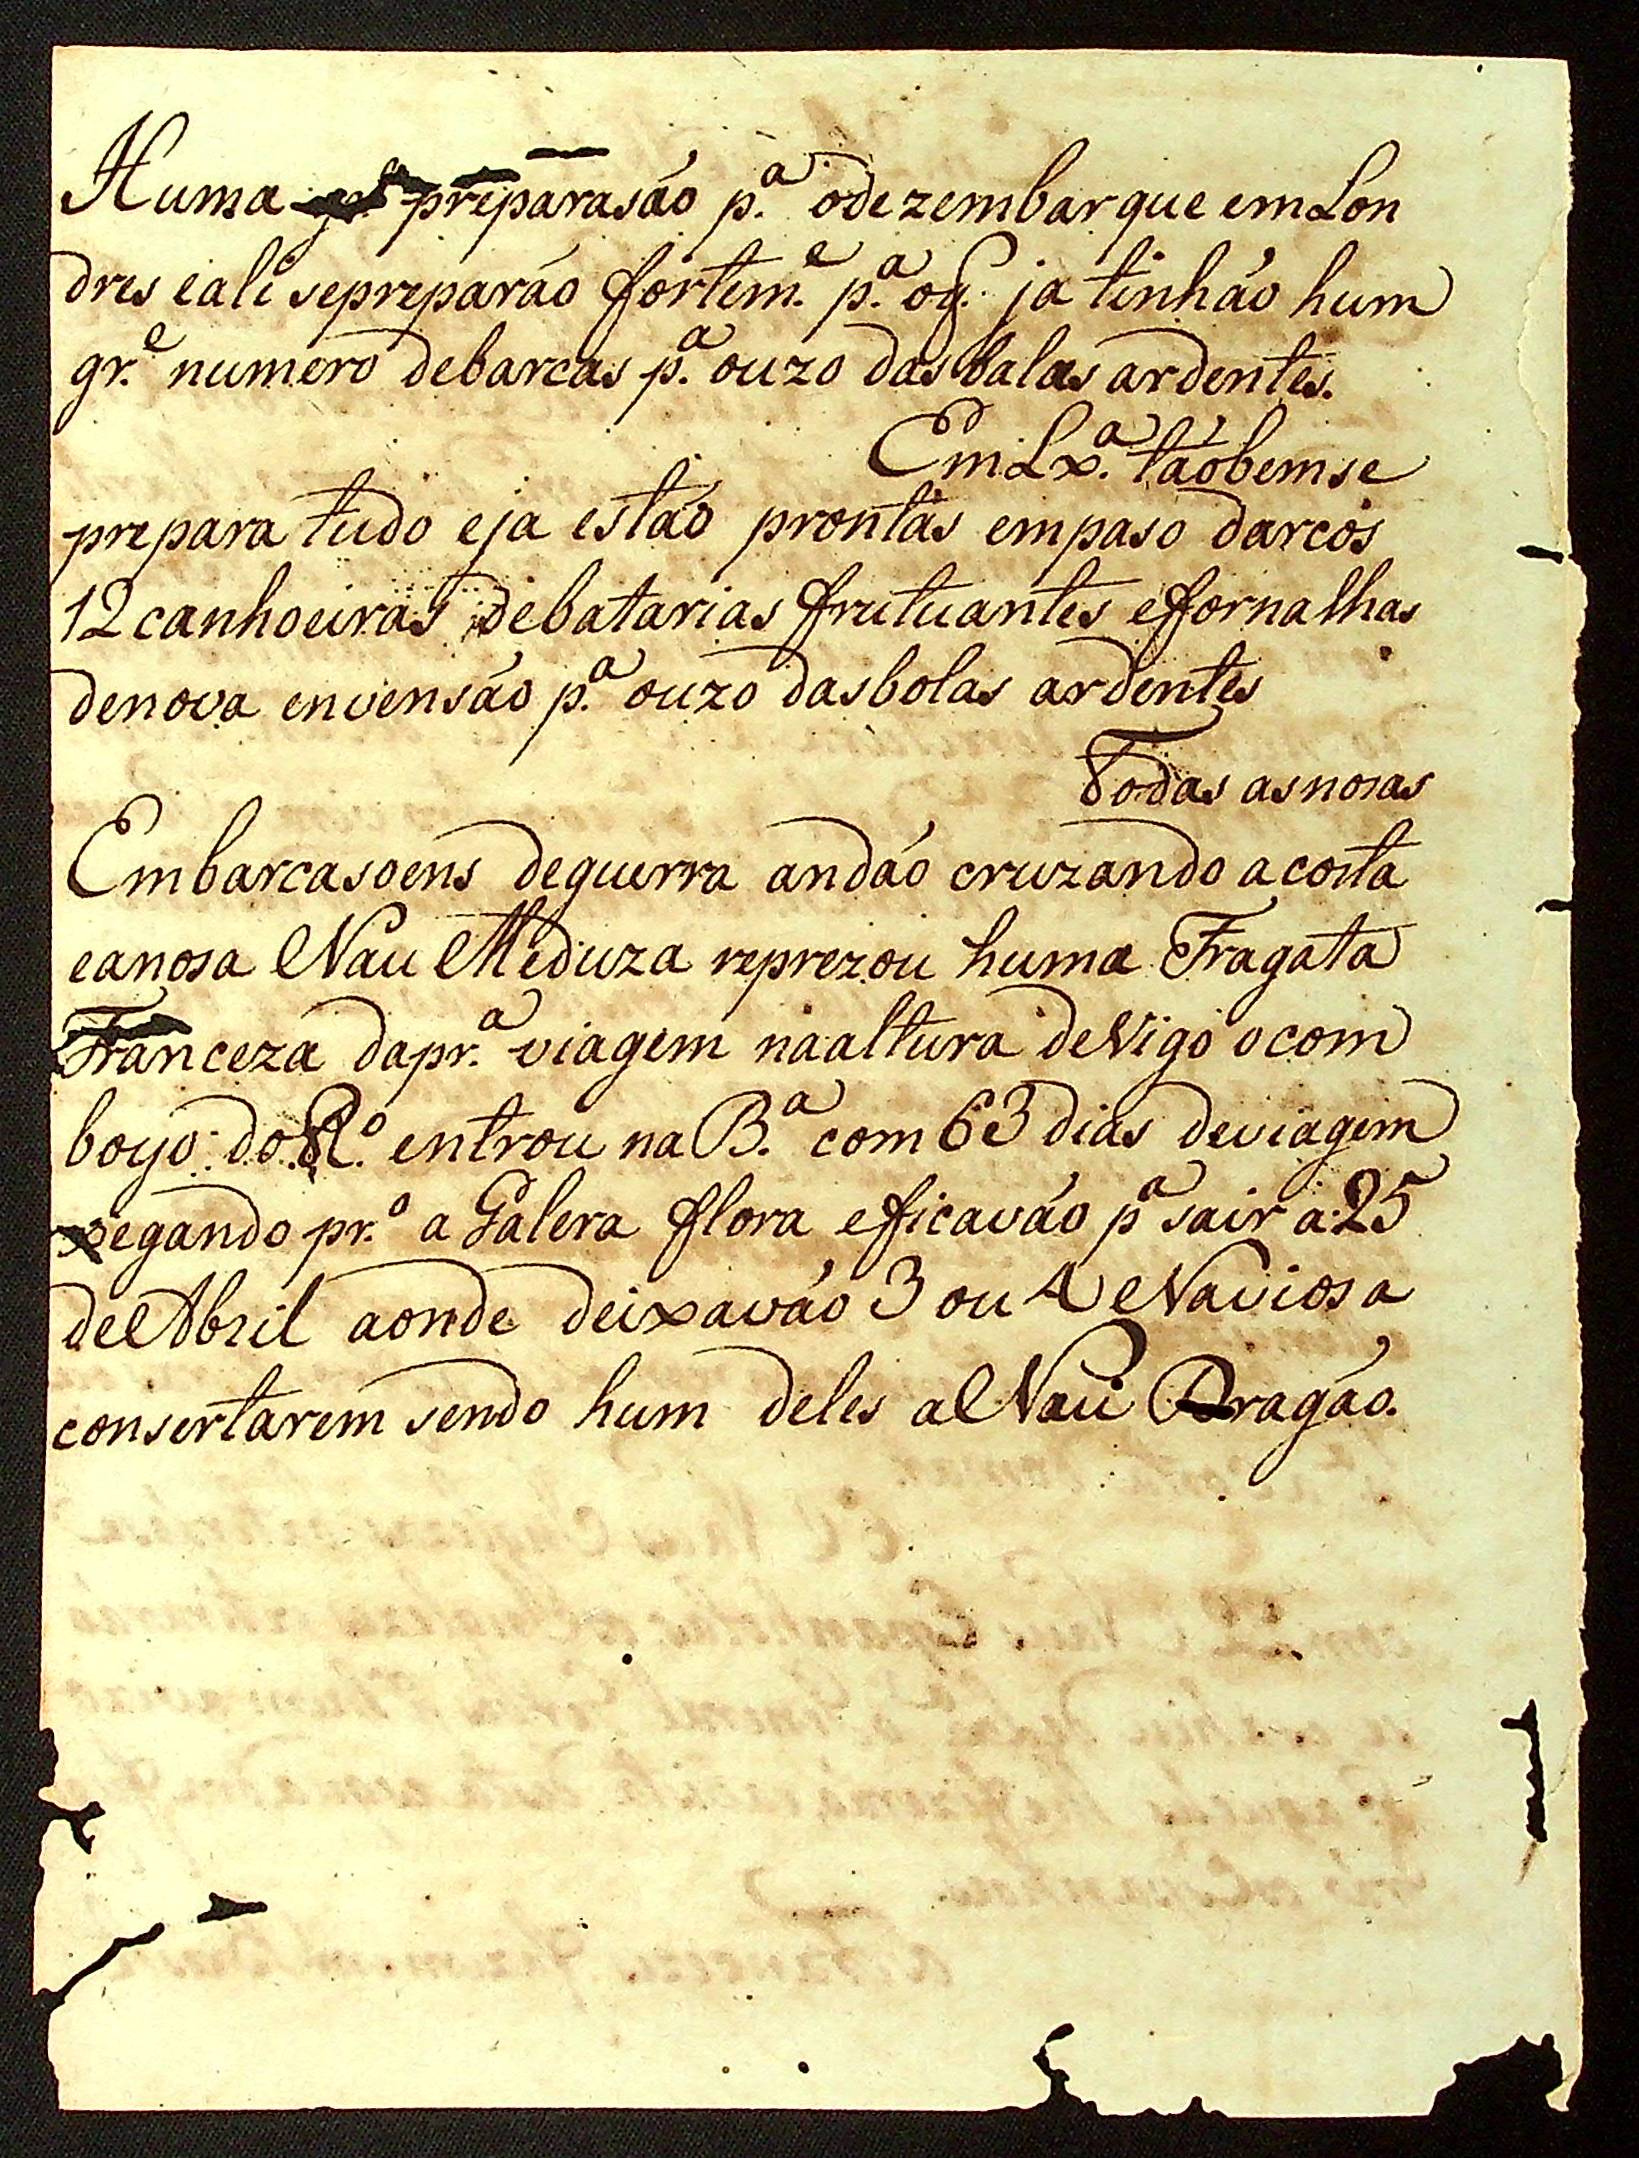 Huma gr.e preparasão p.a odezembarque emLon
dres eali sepreparão fortem.e p.a oq. ja tinhão hum
gr.e numero debarcas p.a ouzo dasbalas ardentes.
EmLx.a tãobemse
prepara tudo eja estão prontas empaso darcos
12 canhoeiras debatarias frutuantes efornalhas
denova envensão p.a ouzo dasbolas ardentes
Todas asnosas
Embarcasoens deguerra andão cruzando acosta
eanosa Nau Meduza reprezou huma Fragata
Franceza dapr.a viagem naaltura deVigo ocom
boyo do R.o entrou na B.a com 63 dias deviagem
xegando pr.o a Galera flora eficavão p.a sair a 25
deAbril aonde deixavão 3 ou 4 Navios a
consertarem sendo hum deles aNau Dragão.